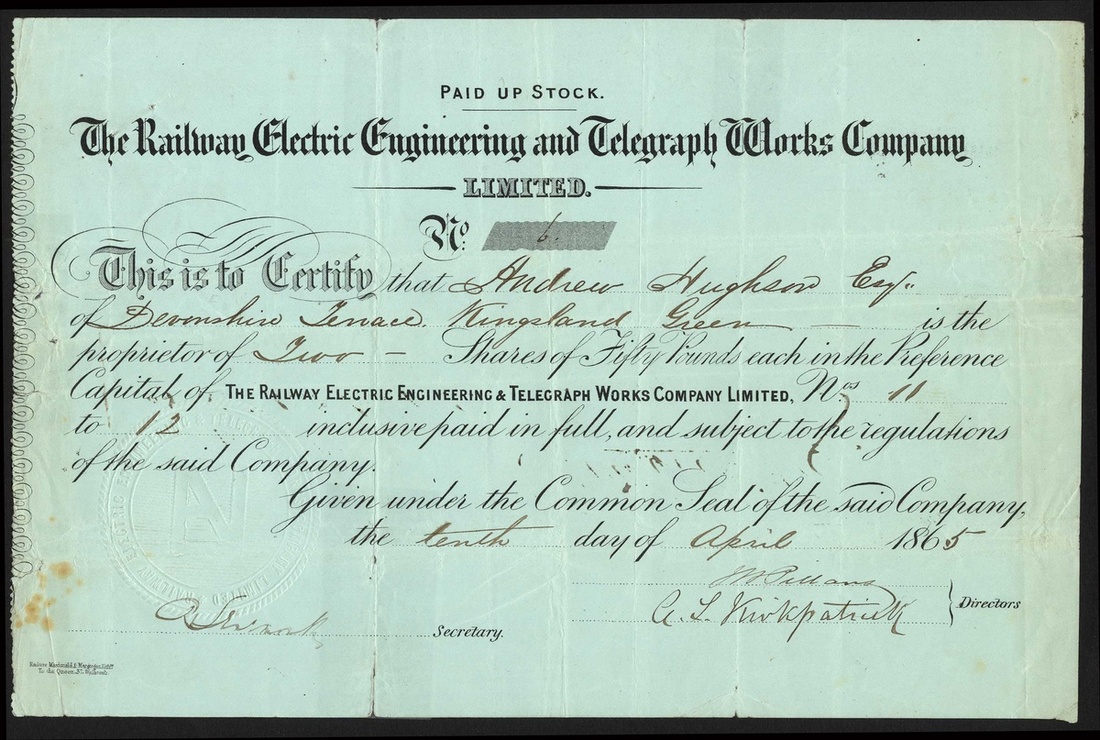 PAID UP STOCK.
The Railway Electric Engineering and Telegraph Works Company
LIMITED.
No. 6.
This is to Certify that Andrew Hughson Esqr.
of Devonshire Terrace. Kingsland Green — is the
proprietor of Two — Shares of Fifty Pounds each in the Preference
Capital of THE RAILWAY ELECTRIC ENGINEERING & TELEGRAPH WORKS COMPANY LIMITED, Nos. 11
to 12 inclusive paid in full, and subject to the regulations
of the said Company.
Given under the Common Seal of the said Company,
the tenth day of April 1865
A. L. Kirkpatrick
Directors
Secretary.
To the Queen, 37, Walbrook.